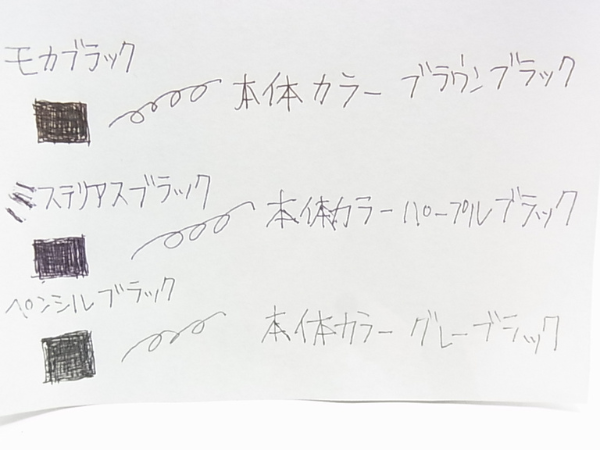 モカブラック
本体カラー ブラウンブラック
ミステリアスブラック
本体カラー パープルブラック
ペンシルブラック
本体カラー グレーブラック